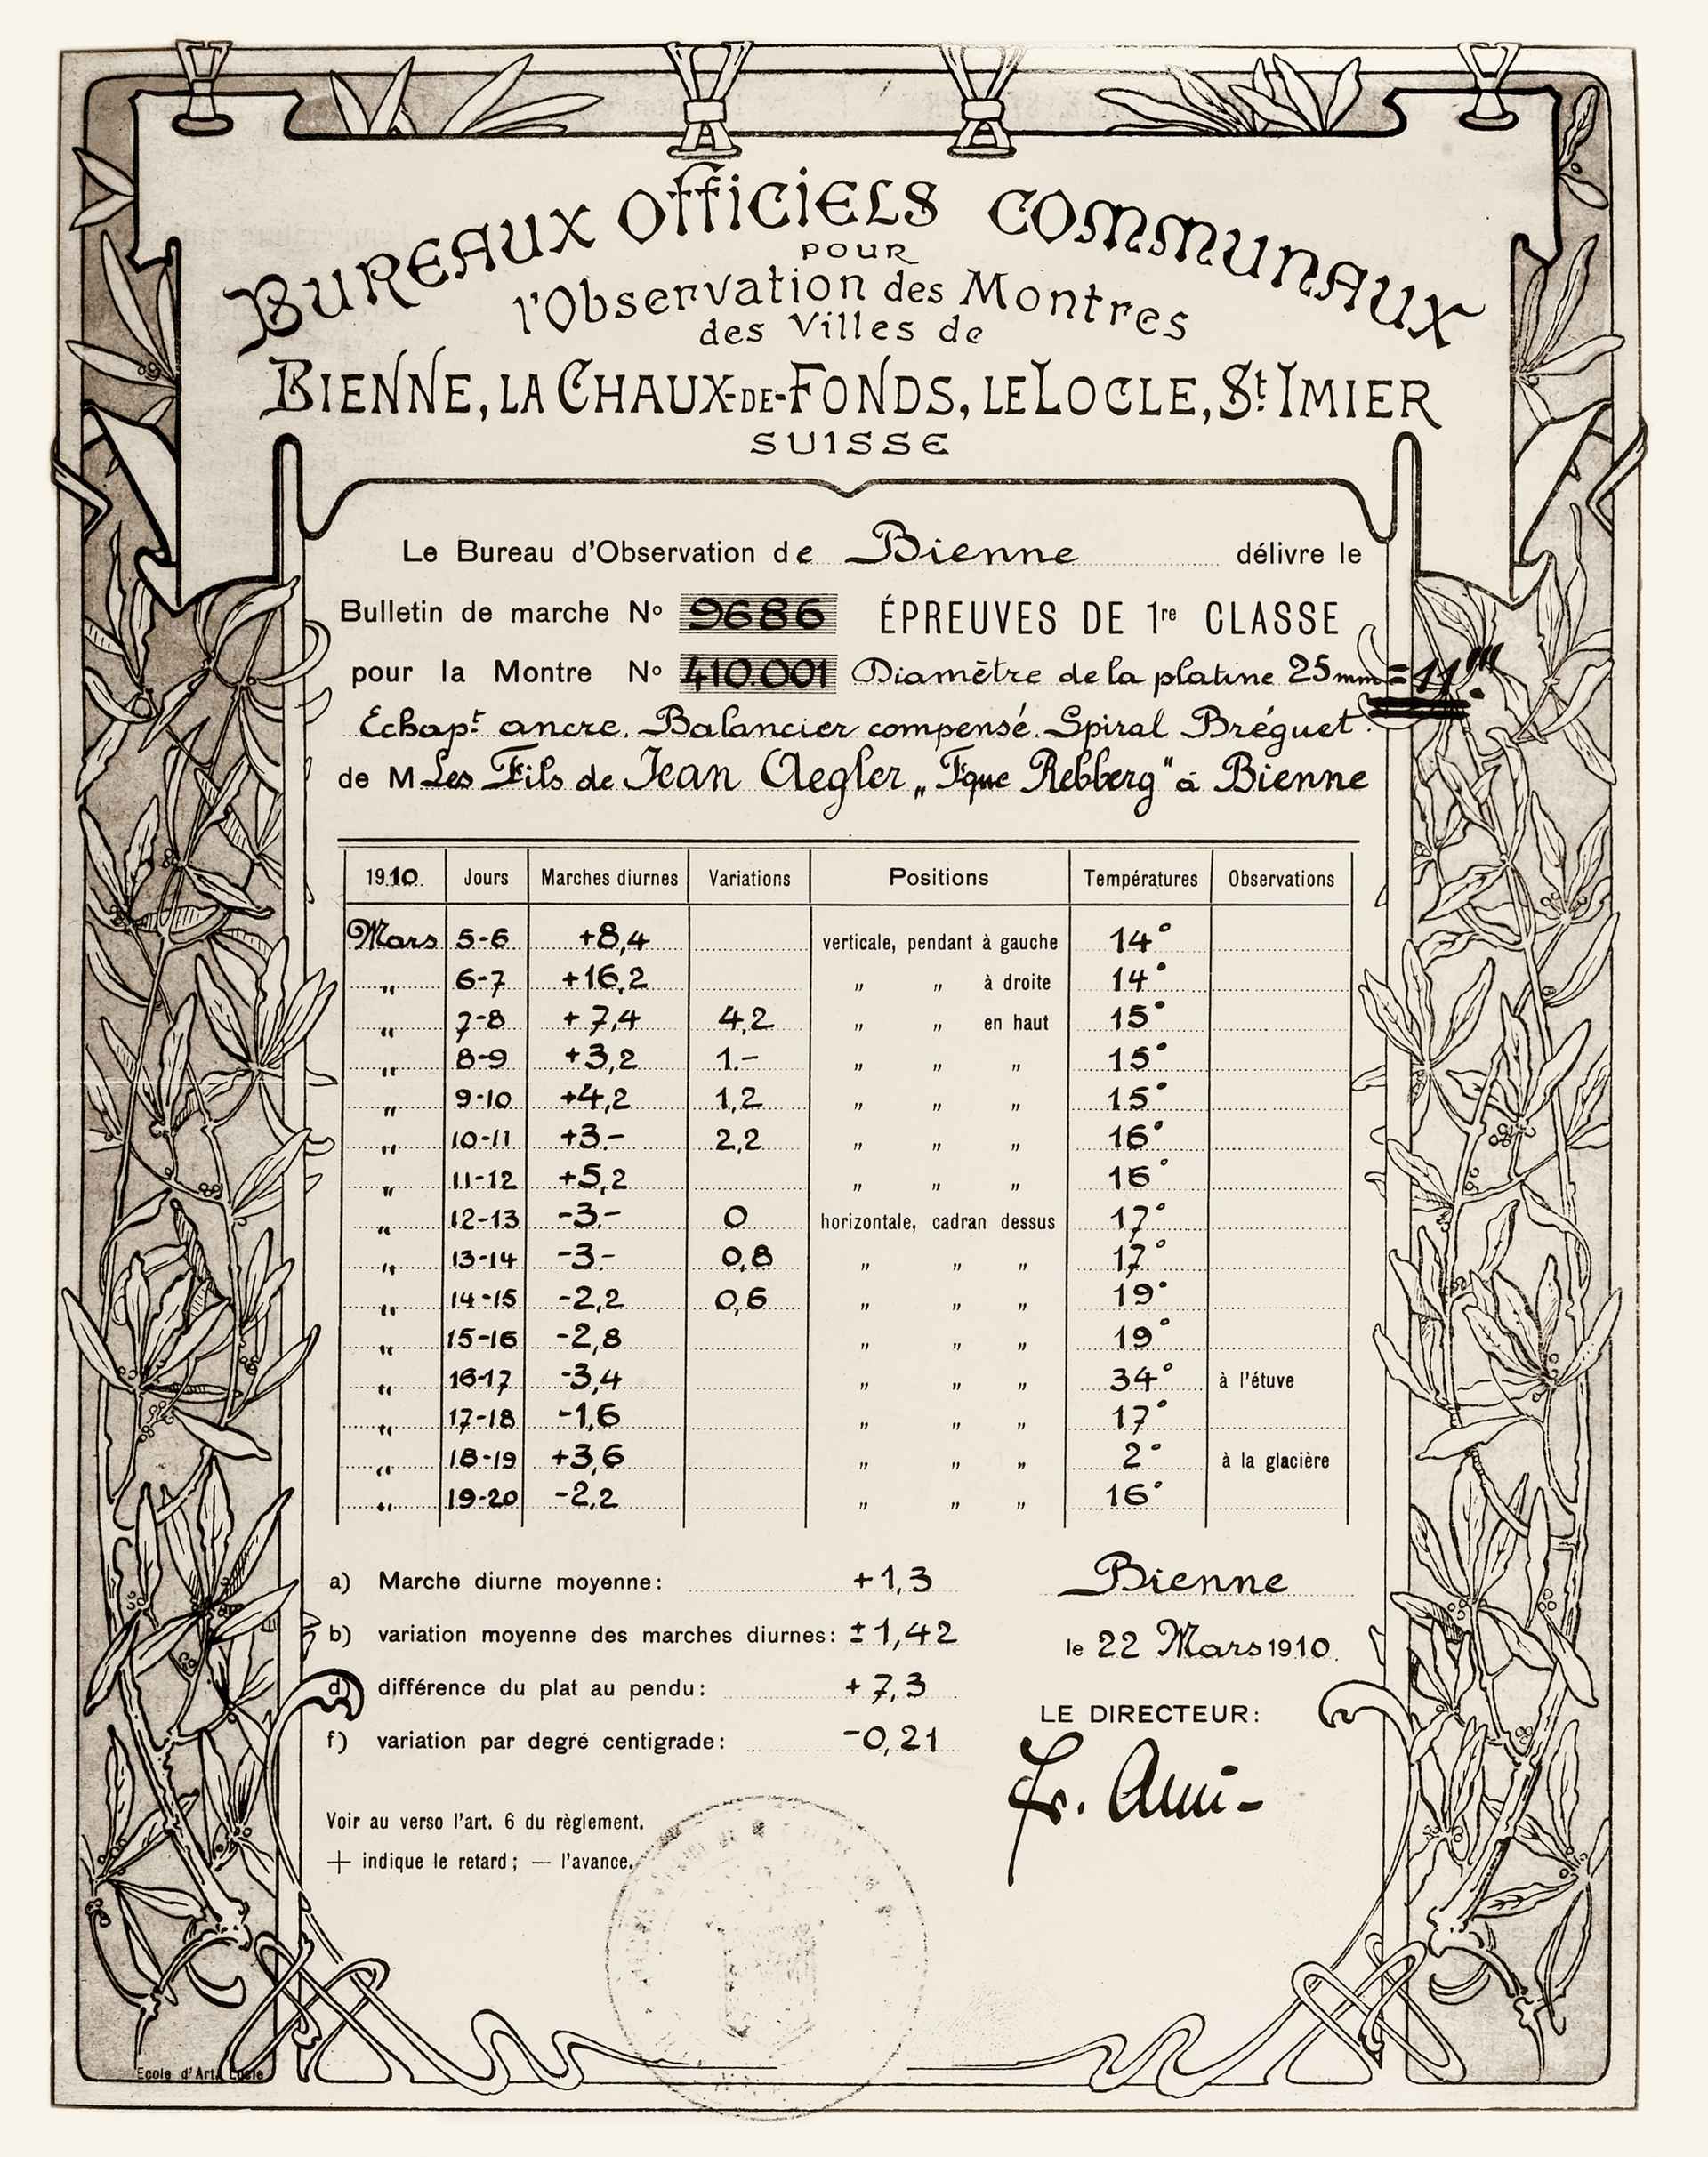 BUREAUX OFFICIELS COMMUNAUX
POUR
l'Observation des Montres
des Villes de
BIENNE, LA CHAUX-DE-FONDS, LE LOCLE, St IMIER
SUISSE
Le Bureau d'Observation de Bienne délivre le
Bulletin de marche No 9686 ÉPREUVES DE 1re CLASSE
pour la Montre No 410.001 Diamètre de la platine 25mm = 11'''
Echapt ancre. Balancier compensé. Spiral Bréguet.
de M Les Fils de Jean Aegler „Fque Rebberg" à Bienne
1910. Jours Marches diurnes Variations Positions Températures Observations
Mars 5-6 +8,4 verticale, pendant à gauche 14°
„ 6-7 +16,2 „ „ à droite 14°
„ 7-8 +7,4 4,2 „ „ en haut 15°
„ 8-9 +3,2 1.- „ „ „ 15°
„ 9-10 +4,2 1,2 „ „ „ 15°
„ 10-11 +3.- 2,2 „ „ „ 16°
„ 11-12 +5,2 „ „ „ 16°
„ 12-13 -3.- 0 horizontale, cadran dessus 17°
„ 13-14 -3- 0,8 „ „ „ 17°
„ 14-15 -2,2 0,6 „ „ „ 19°
„ 15-16 -2,8 „ „ „ 19°
„ 16-17 -3,4 „ „ „ 34° à l'étuve
„ 17-18 -1,6 „ „ „ 17°
„ 18-19 +3,6 „ „ „ 2° à la glacière
„ 19-20 -2,2 „ „ „ 16°
a) Marche diurne moyenne: +1,3
Bienne
b) variation moyenne des marches diurnes: ±1,42
le 22 Mars 1910.
d) différence du plat au pendu: +7,3
LE DIRECTEUR:
f) variation par degré centigrade: -0,21
Voir au verso l'art. 6 du règlement.
+ indique le retard; — l'avance.
Ecole d'Art, Locle